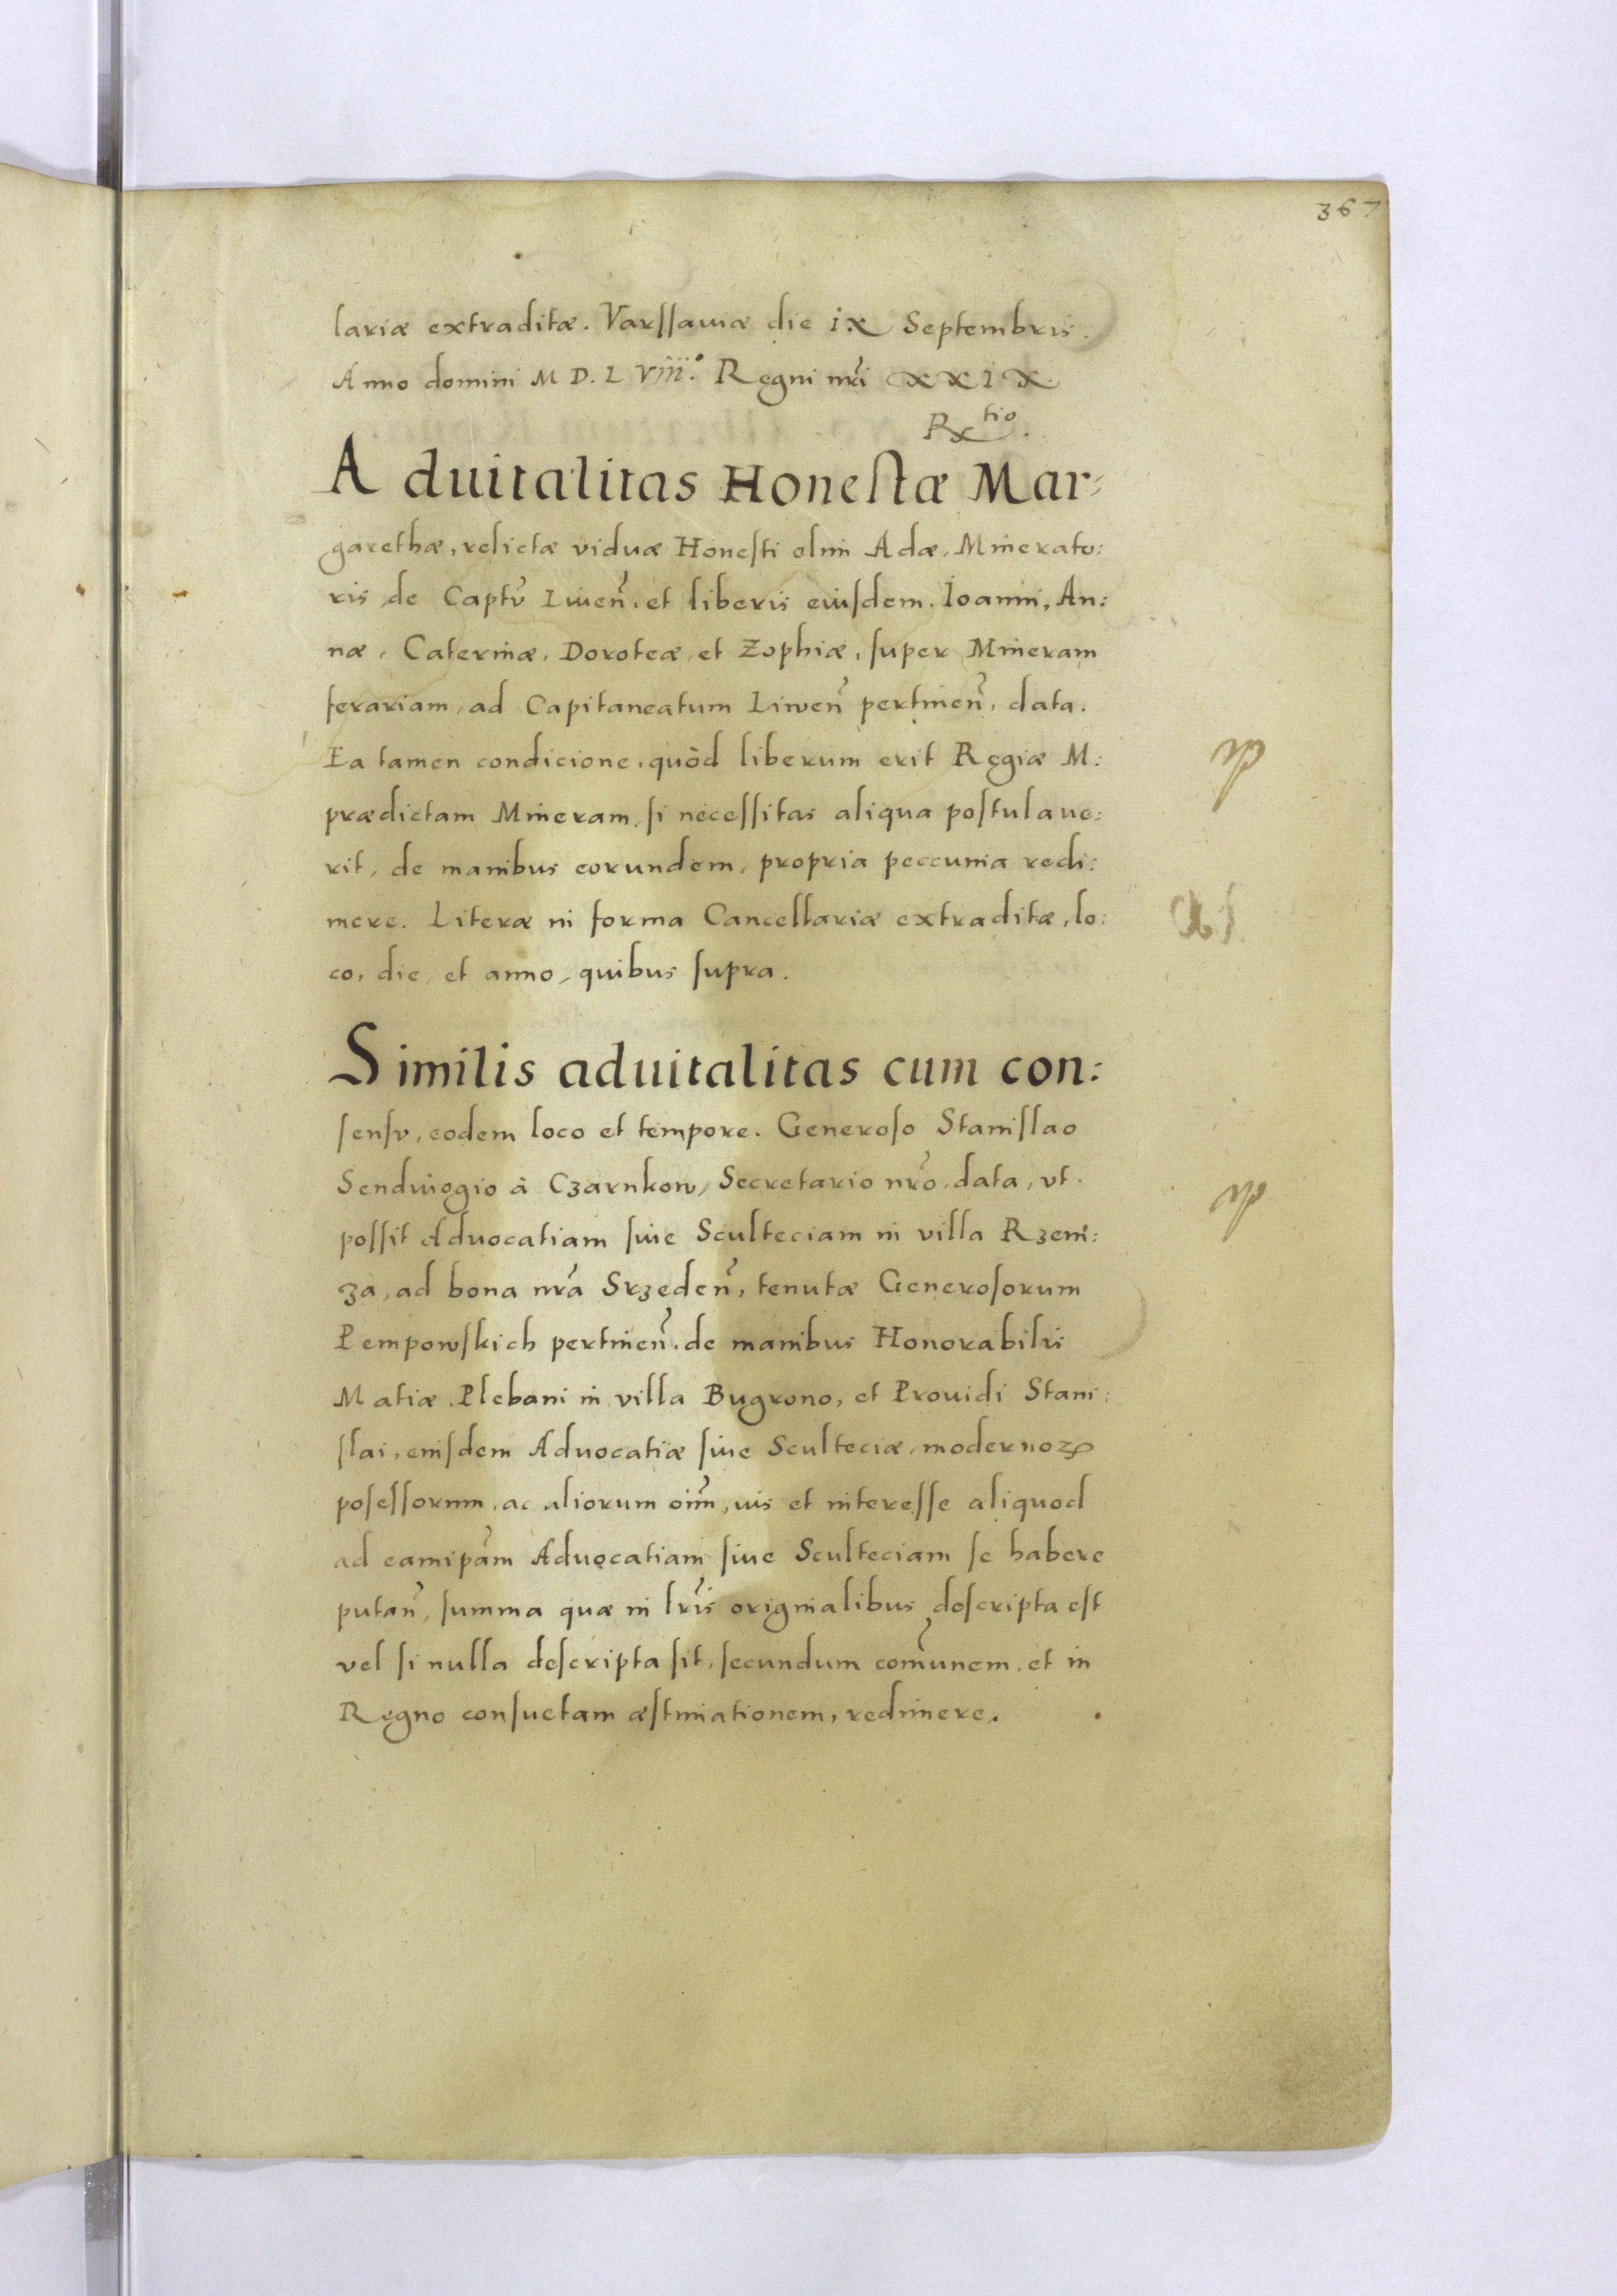 367
lariæ extraditæ. Varssauiæ die ix Septembris.
Anno domini M D. L viii.° Regni nr̃i xxix
R tio.
Aduitalitas Honestæ Mar:
garethæ, relictæ viduæ Honesti olim Adæ, Minerato:
ris de Captũ Liuen̄. et liberis eiusdem. Ioanni, An:
næ, Caterinæ, Doroteæ, et Zophiæ, super Mineram
ferariam, ad Capitaneatum Liwen̄ pertinen̄, data.
Ea tamen condicione, quòd liberum erit Regiæ M:
prædictam Mineram, si necessitas aliqua postulaue:
rit, de manibus eorundem, propria peccunia redi:
mere. Literæ in forma Cancellariæ extraditæ, lo:
co, die, et anno, quibus supra.
Similis aduitalitas cum con:
sensv, eodem loco et tempore. Generoso Stanislao
Senduiogio à Czarnkow, Secretario nr̃o, data, vt
possit Aduocatiam siue Sculteciam in villa Rzeni:
za, ad bona nr̃a Srzeden̄, tenutæ Generosorum
Pempowskich pertinen̄. de manibus Honorabilis
Matiæ. Plebani in villa Bugrono, et Prouidi Stani:
slai, eiusdem Aduocatiæ siue Sculteciæ, modernoꝝ
posessorum, ac aliorum oim̄, ius et interesse aliquod
ad eamip̃am Aduocatiam siue Sculteciam se habere
putan̄, summa quæ in lr̃is originalibus descripta est
vel si nulla descripta sit, secundum com̃unem, et in
Regno consuetam æstimationem, redimere.